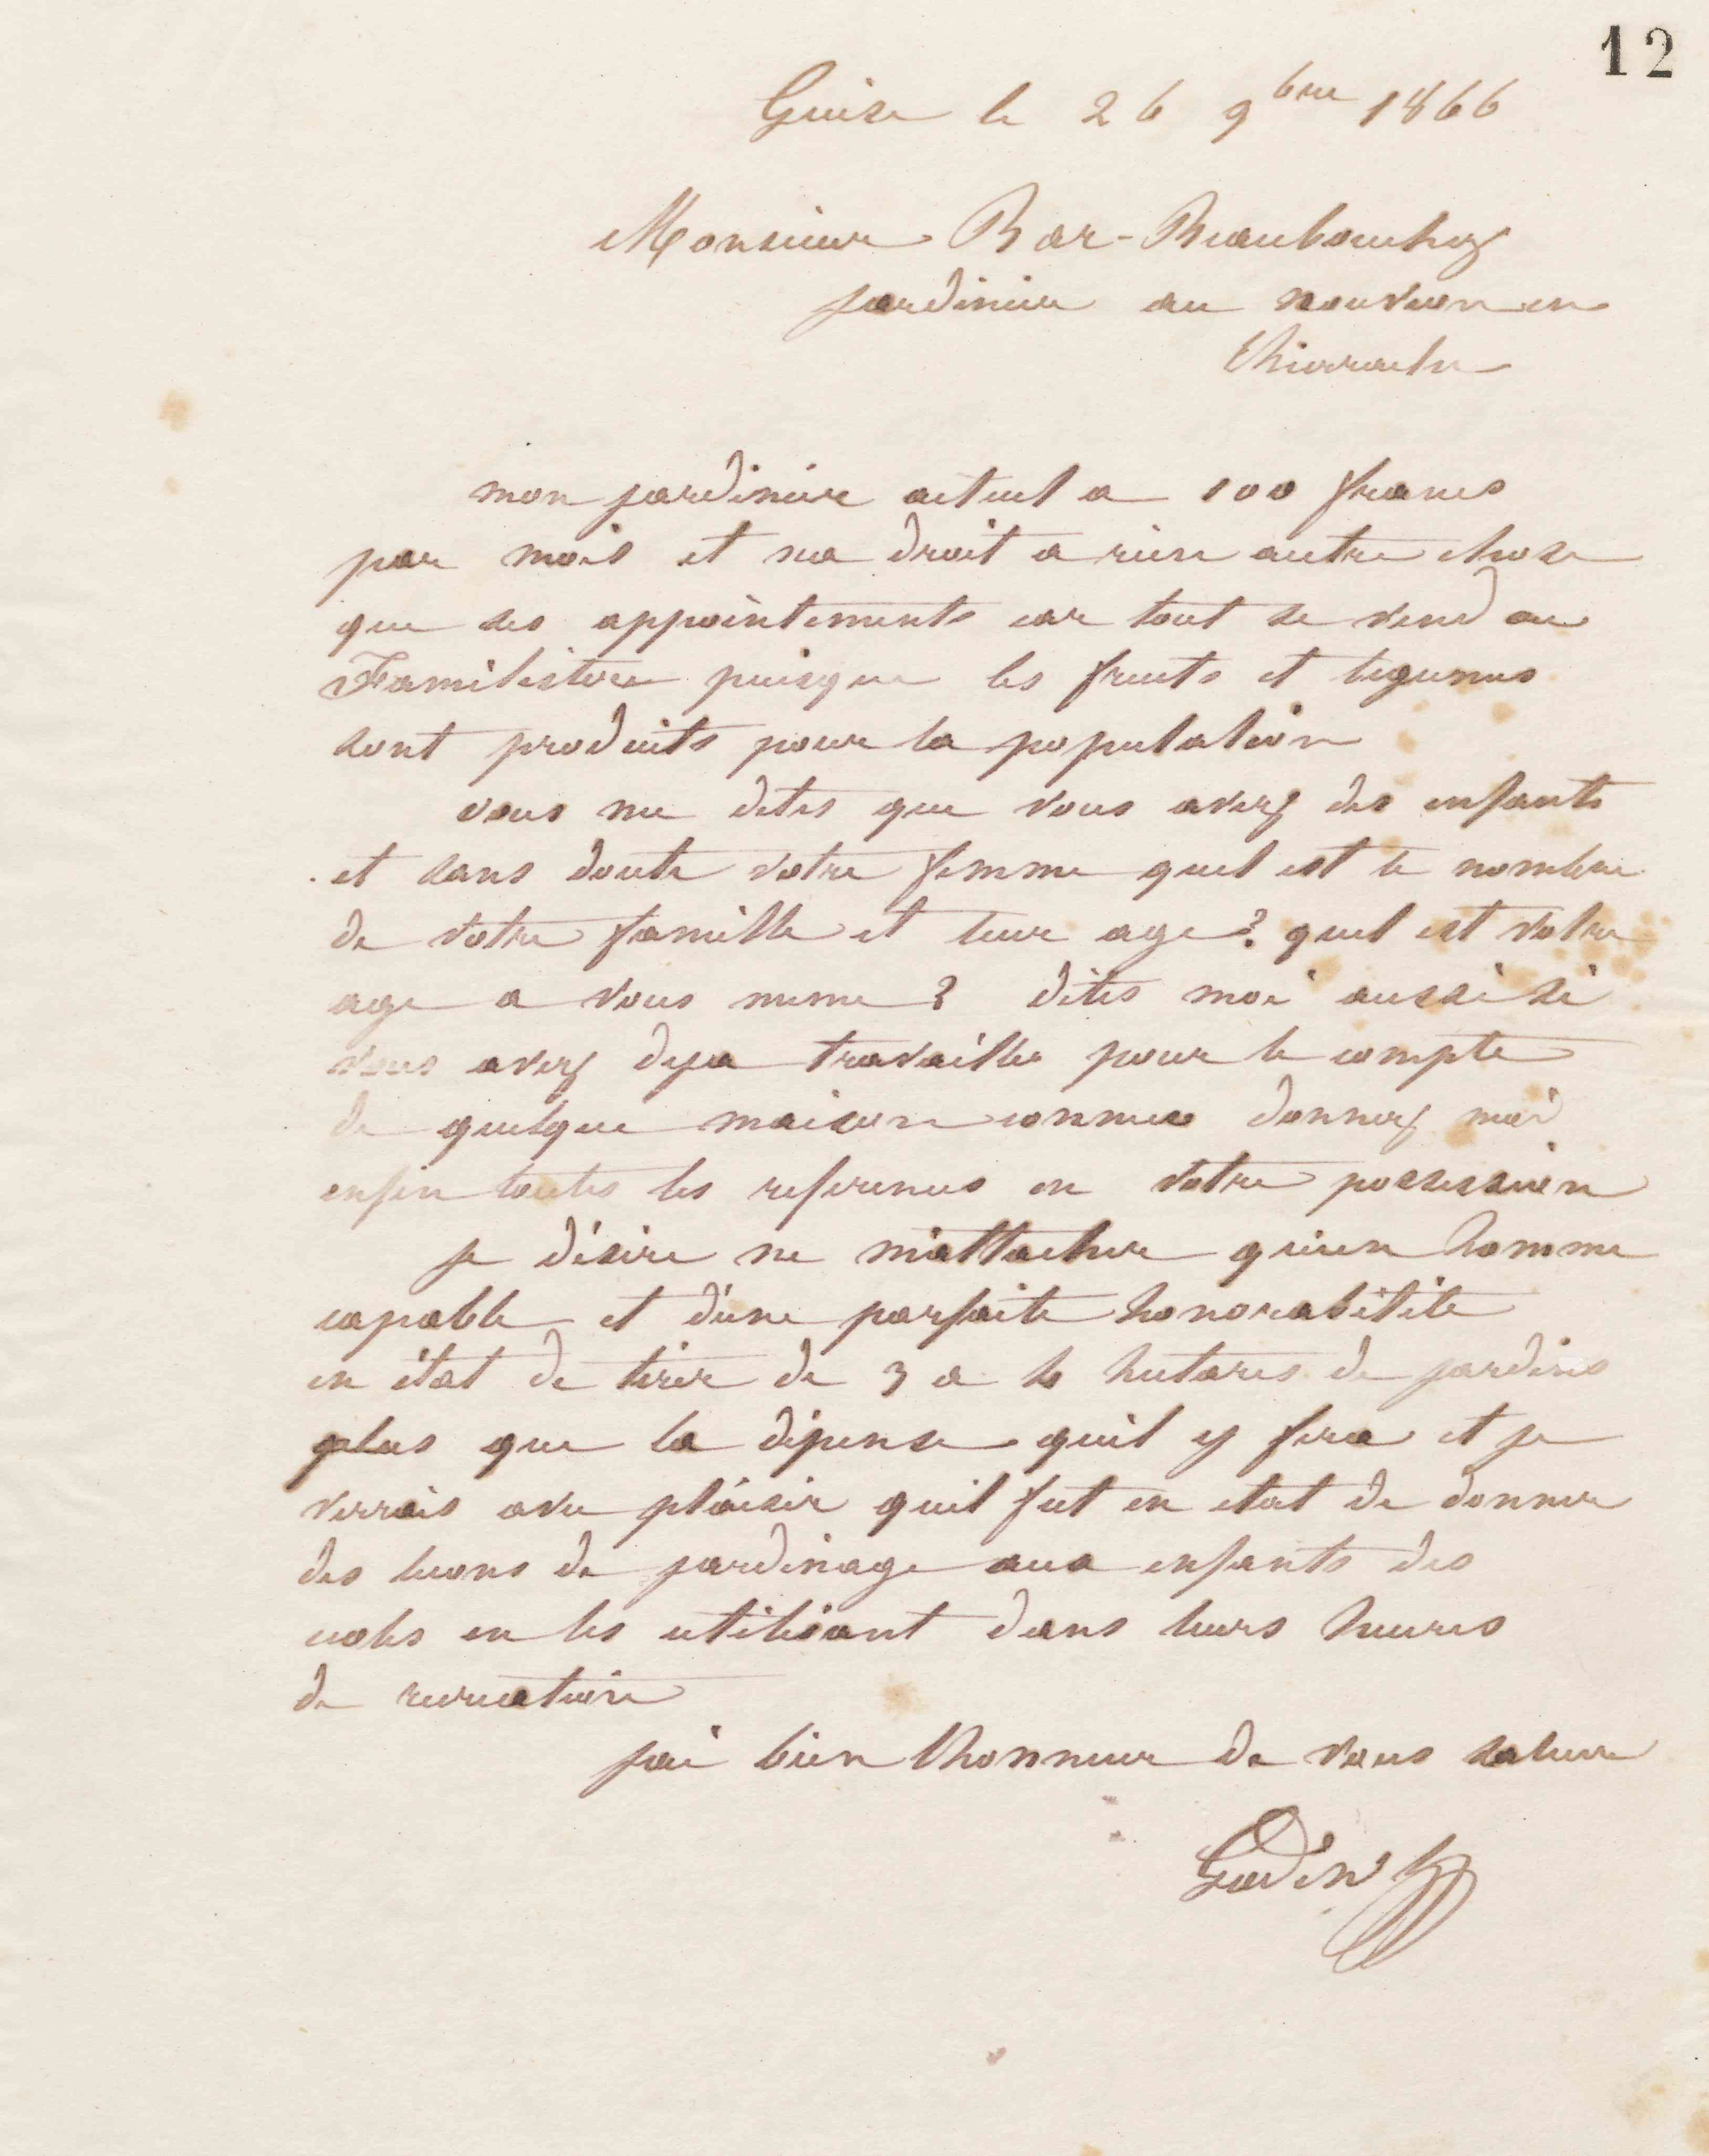 12
Guise le 26 9bre 1866
Monsieur Bar-Beaubouchez
jardinier au nouvion en
thierache
mon jardinier actuel a 100 francs
par mois et na droit a rien autre chose
que ses appointements car tout se vend au
Familistere puisque les fruits et legumes
sont produits pour la population
vous me dites que vous avez des enfants
et sans doute votre femme quel est le nombre
de votre famille et leur age? quel est votre
age a vous meme? dites moi aussi si
vous avez deja travaillé pour le compte
de quelque maison connue donnez moi
enfin toutes les references en votre possession
je désire ne m'attacher qu'un homme
capable et d'une parfaite honorabilité
en état de tirer de 3 a 4 hectares de jardins
plus que la dépense qu'il y fera et je
verrais avec plaisir quil fut en etat de donner
des lecons de jardinage aux enfants des
ecoles en les utilisant dans leurs heures
de recreation
jai bien lhonneur de vous saluer
Godin